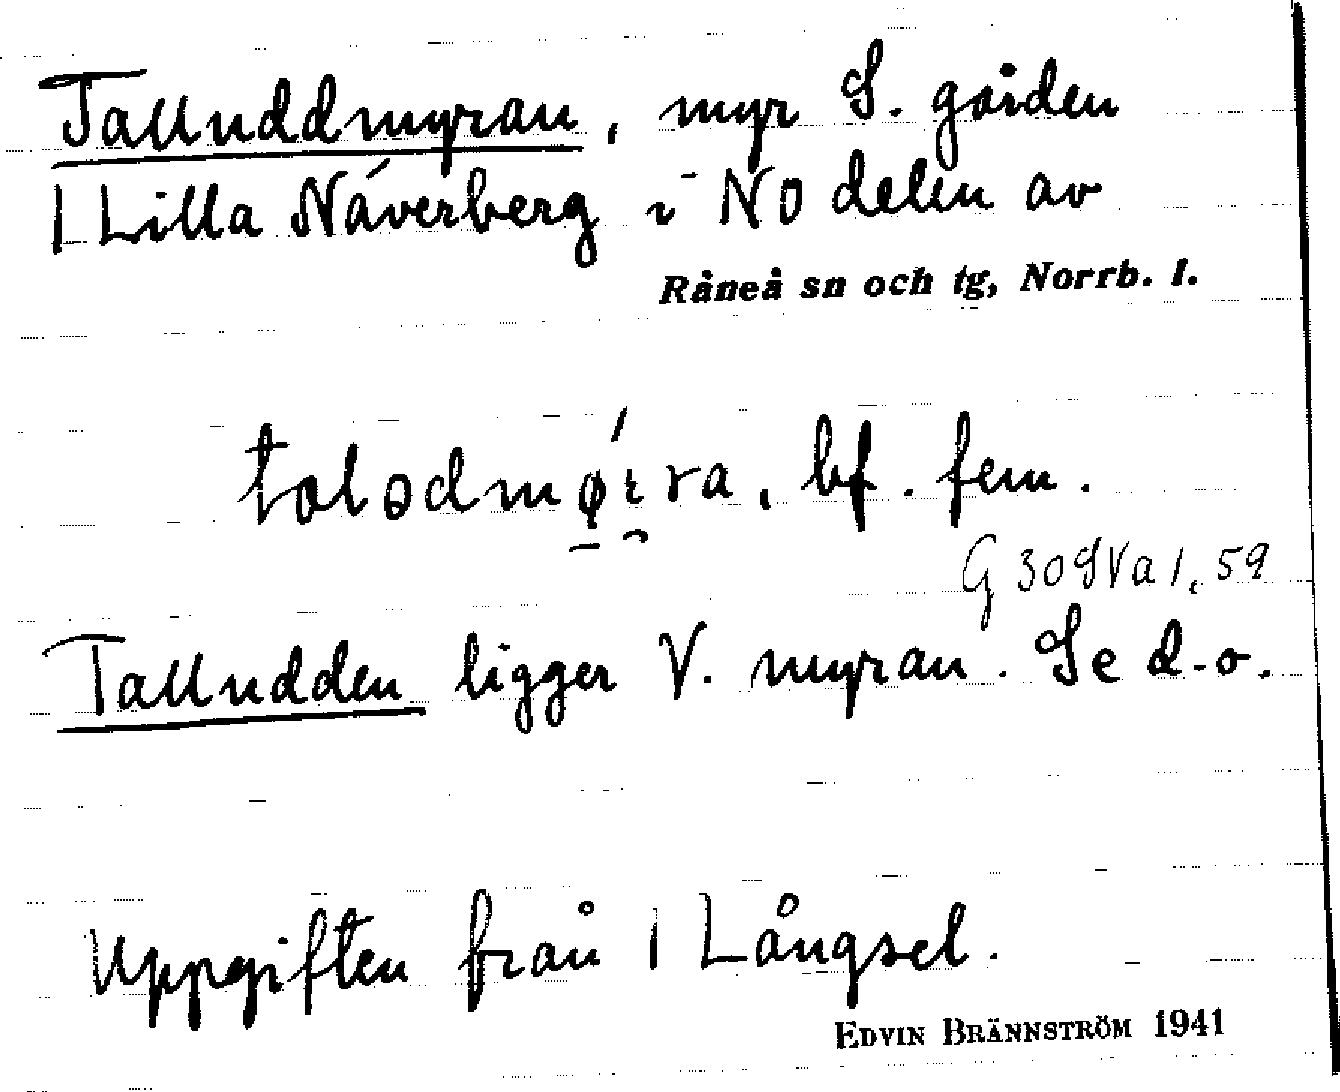 Tallnddmyran, myr S. gården
1 Lilla Näverberg i NO delen av
Råneå sn och tg, Norrb. l.
bf. fem.
G 30 SVa 1, 59
Talludden ligger V. myran. Se d-o.
Uppgiften från 1 Långsel.
EDVIN BRÄNNSTRÖM 1941